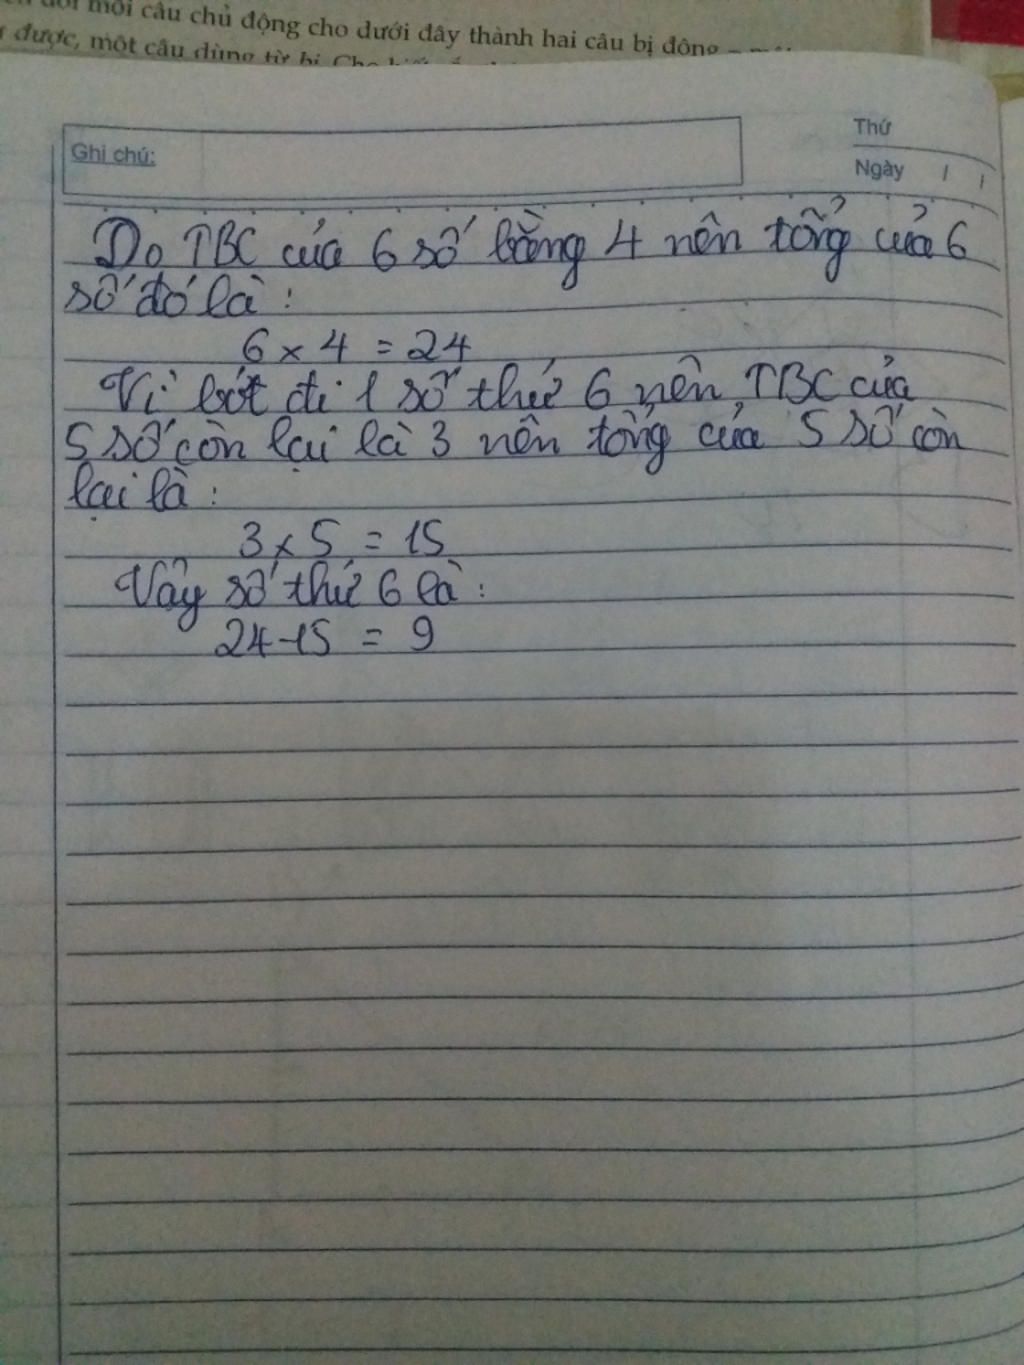 mỗi câu chủ động cho dưới đây thành hai câu bị động
được, một câu dùng từ bị.
Thứ
Ghi chú:
Ngày / /
Do TBC của 6 số bằng 4 nên tổng của 6
số đó là :
6 x 4 = 24
Vì bớt đi 1 số thứ 6 nên TBC của
5 số còn lại là 3 nên tổng của 5 số còn
lại là :
3 x 5 = 15
Vậy số thứ 6 là :
24-15 = 9